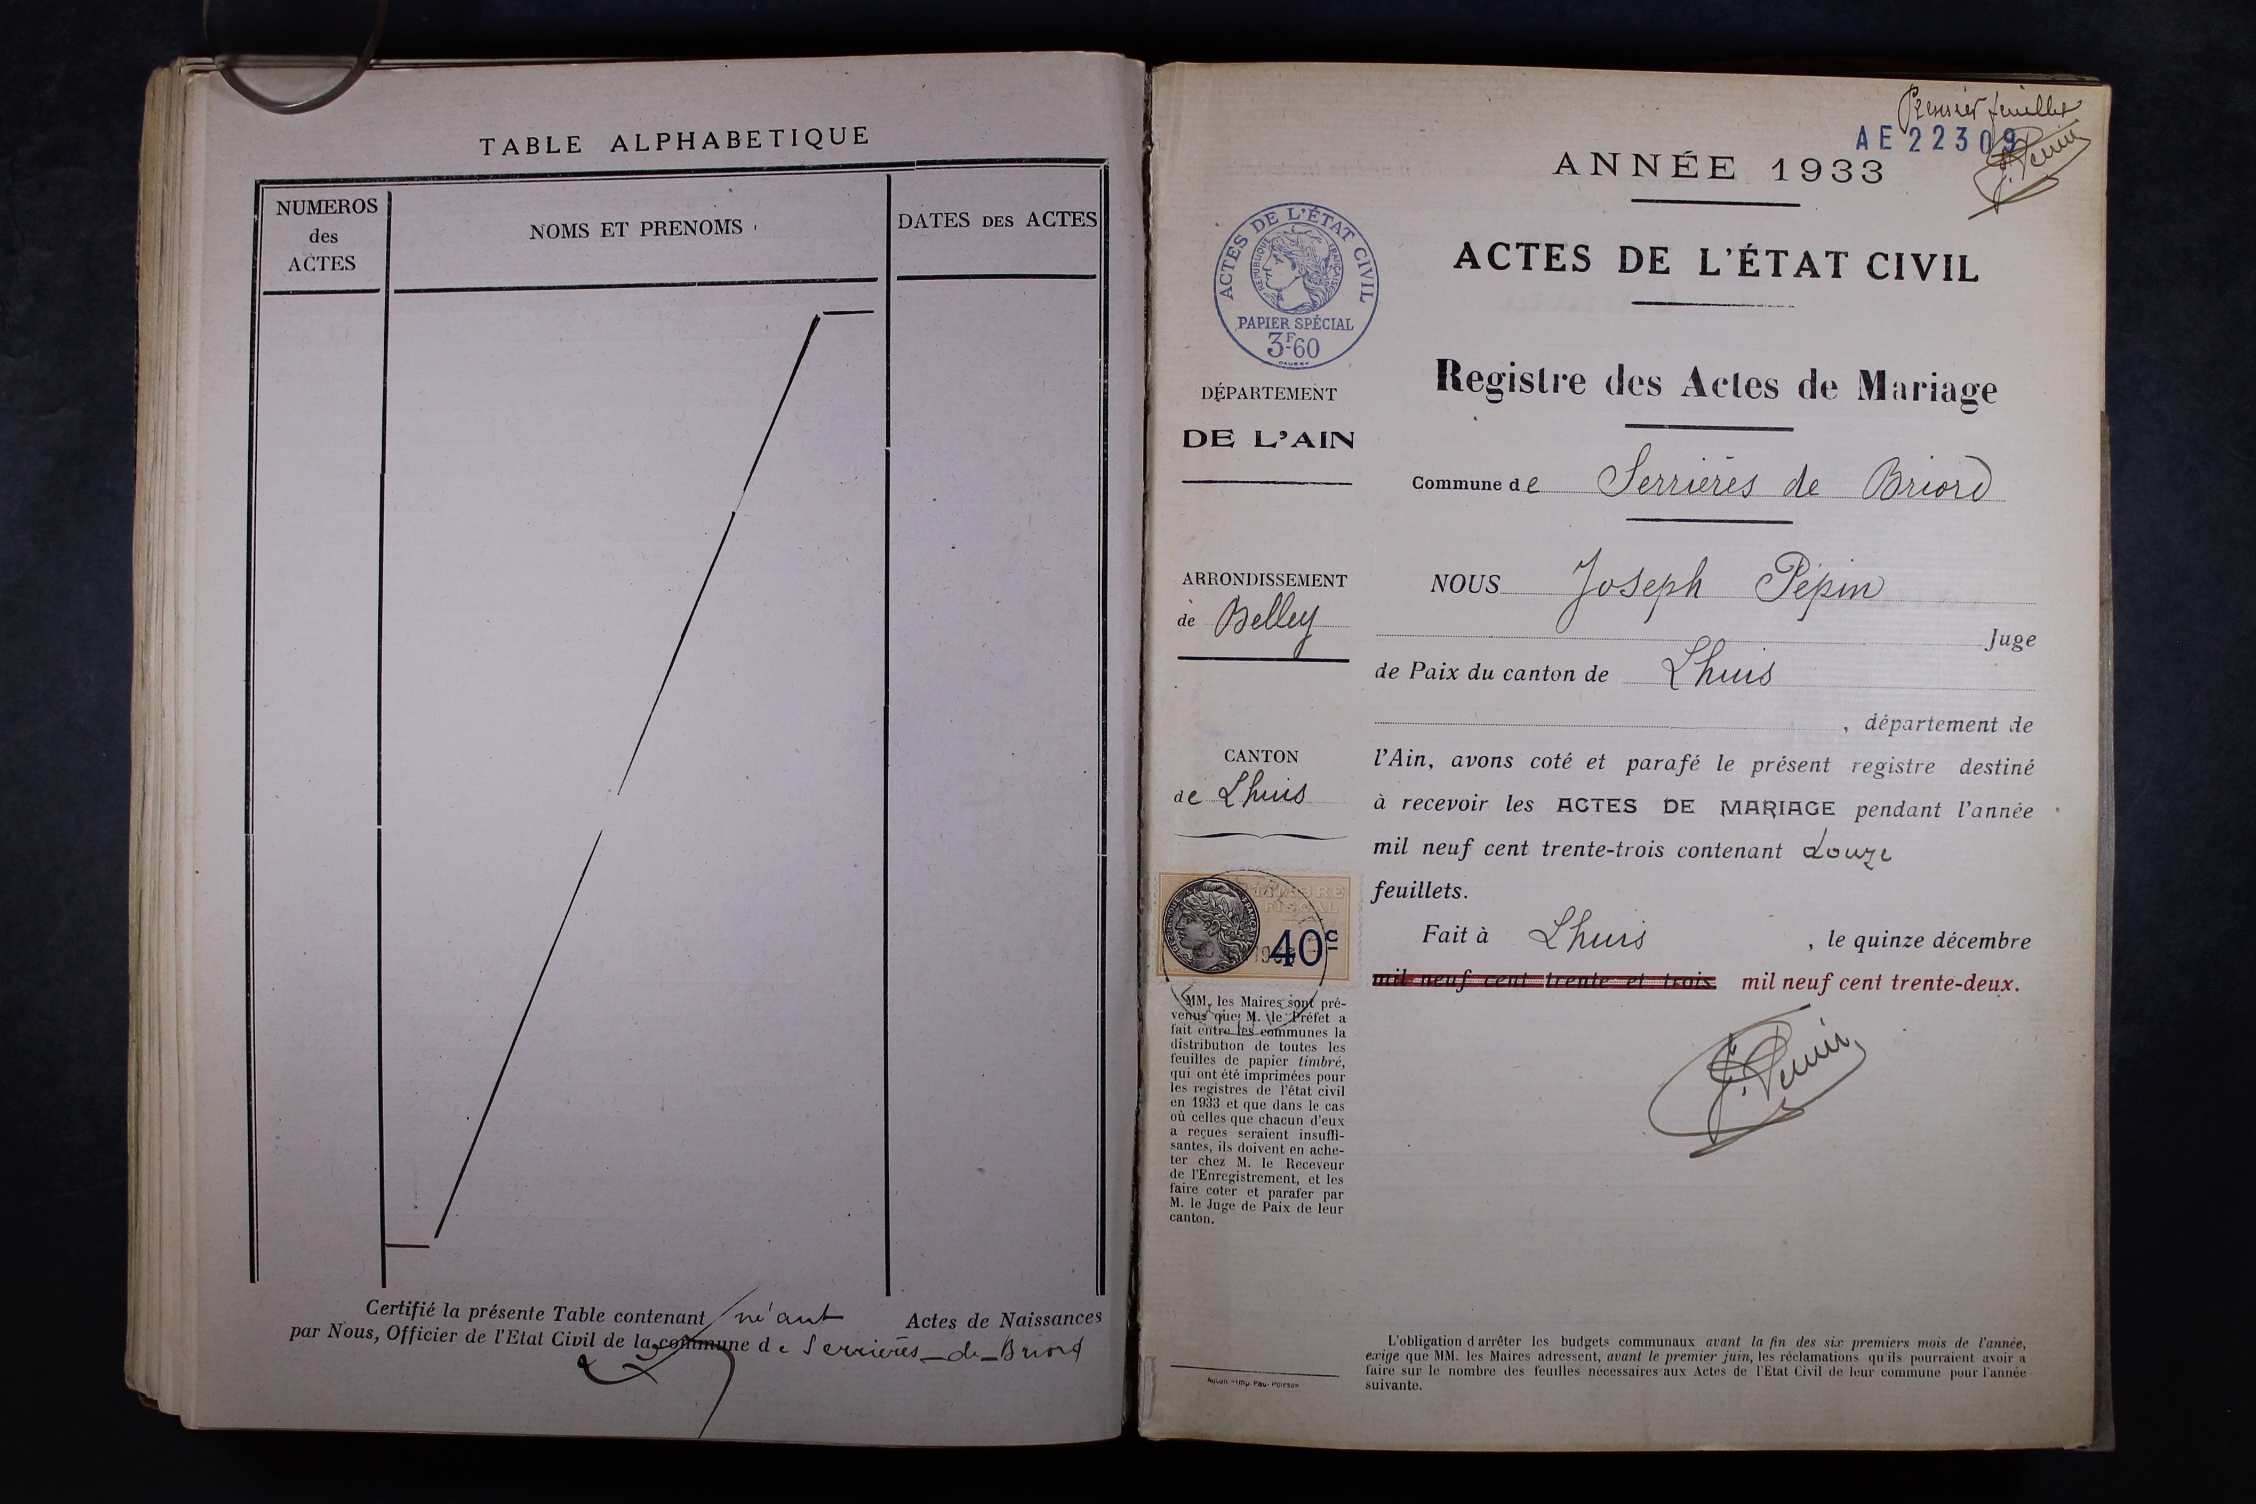 TABLE ALPHABETIQUE
NUMEROS
des
ACTES
NOMS ET PRENOMS
DATES DES ACTES
Certifié la présente Table contenant néant Actes de Naissances
par Nous, Officier de l'Etat Civil de la commune de Serrières-de-Briord
Premier feuillet
AE 22309
ANNÉE 1933
ACTES DE L'ÉTAT CIVIL
ACTES DE L'ÉTAT CIVIL
REPUBLIQUE FRANÇAISE
PAPIER SPÉCIAL
3F-60
Registre des Actes de Mariage
DÉPARTEMENT
DE L'AIN
Commune de Serrières de Briord
ARRONDISSEMENT
de Belley
CANTON
de Lhuis
TIMBRE
FISCAL
40c
MM. les Maires sont pré-
venus que M. le Préfet a
fait entre les communes la
distribution de toutes les
feuilles de papier timbré,
qui ont été imprimées pour
les registres de l'état civil
en 1933 et que dans le cas
où celles que chacun d'eux
a reçues seraient insuffi-
santes, ils doivent en ache-
ter chez M. le Receveur
de l'Enregistrement, et les
faire coter et parafer par
M. le Juge de Paix de leur
canton.
NOUS Joseph Pépin
Juge
de Paix du canton de Lhuis
, département de
l'Ain, avons coté et parafé le présent registre destiné
à recevoir les ACTES DE MARIAGE pendant l'année
mil neuf cent trente-trois contenant douze
feuillets.
Fait à Lhuis , le quinze décembre
mil neuf cent trente et trois mil neuf cent trente-deux.
L'obligation d'arrêter les budgets communaux avant la fin des six premiers mois de l'année,
exige que MM. les Maires adressent, avant le premier juin, les réclamations qu'ils pourraient avoir à
faire sur le nombre des feuilles nécessaires aux Actes de l'Etat Civil de leur commune pour l'année
suivante.